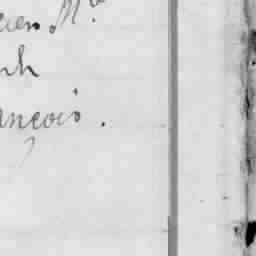 cien Mre
ph
ançois.